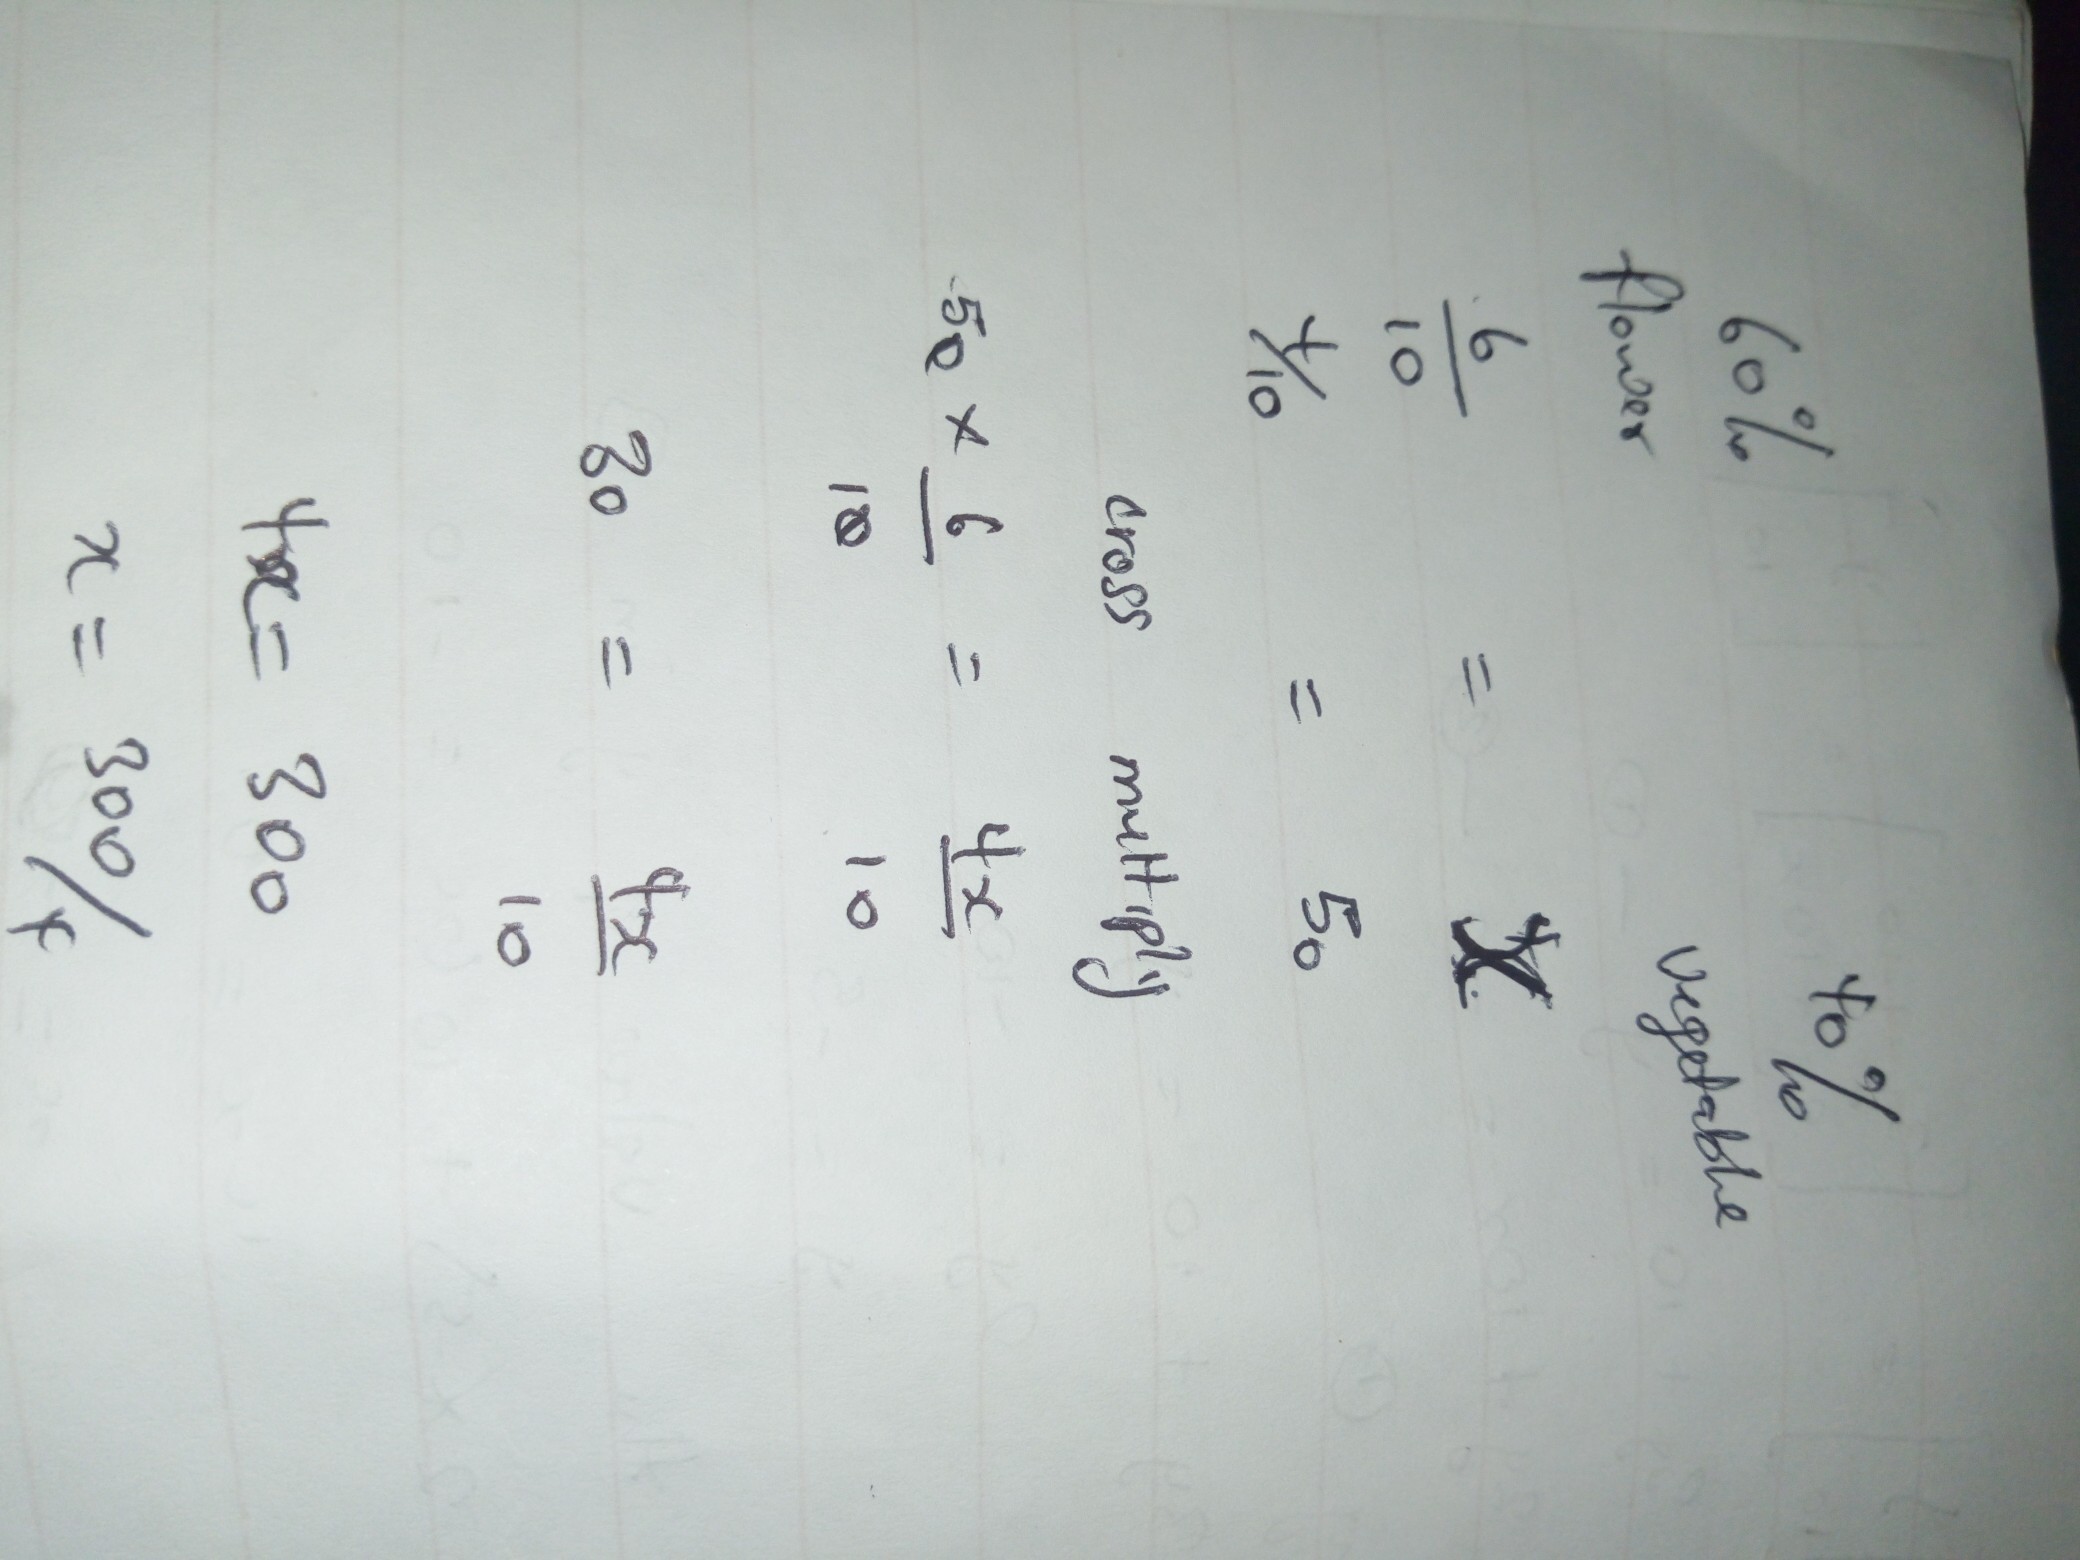 60% 40%
flower vegetable
6/10 = x
4/10 = 50
cross multiply
50 x 6/10 = 4x/10
30 = 4x/10
4x = 300
x = 300/4